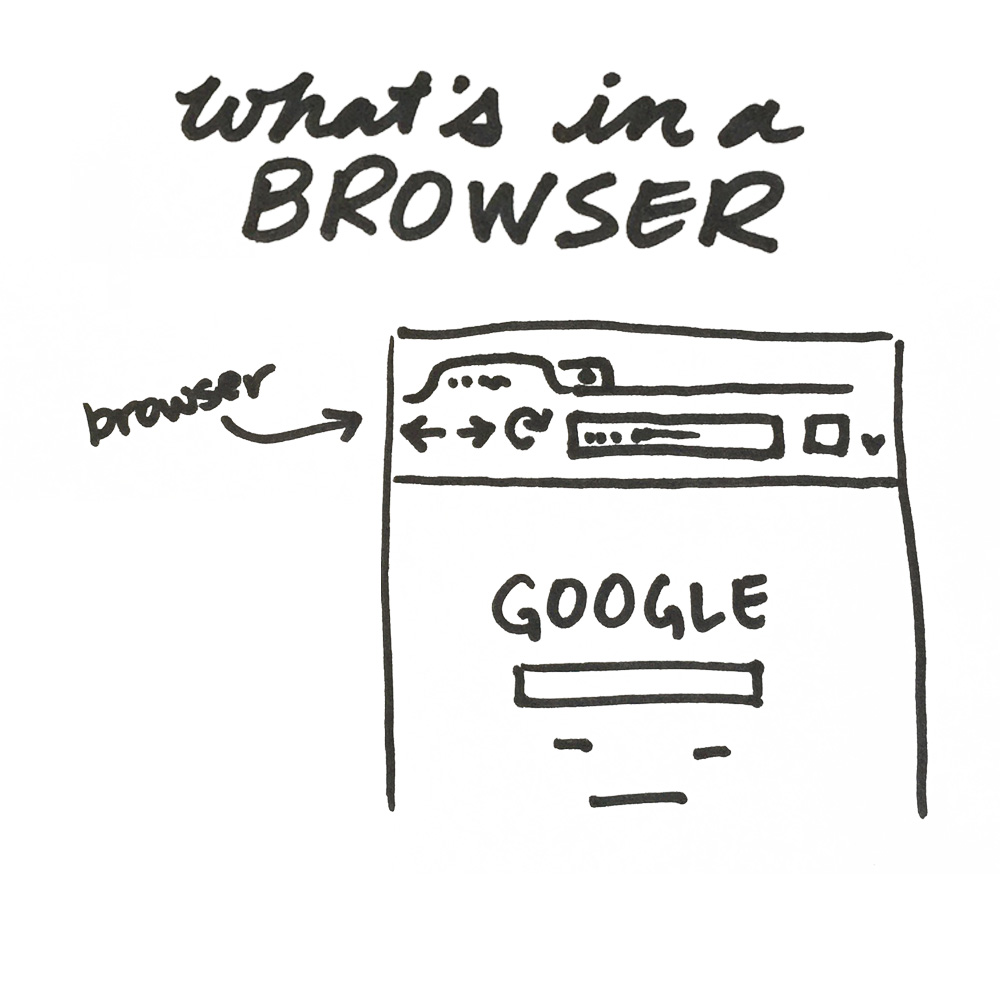 what's in a
BROWSER
browser
GOOGLE